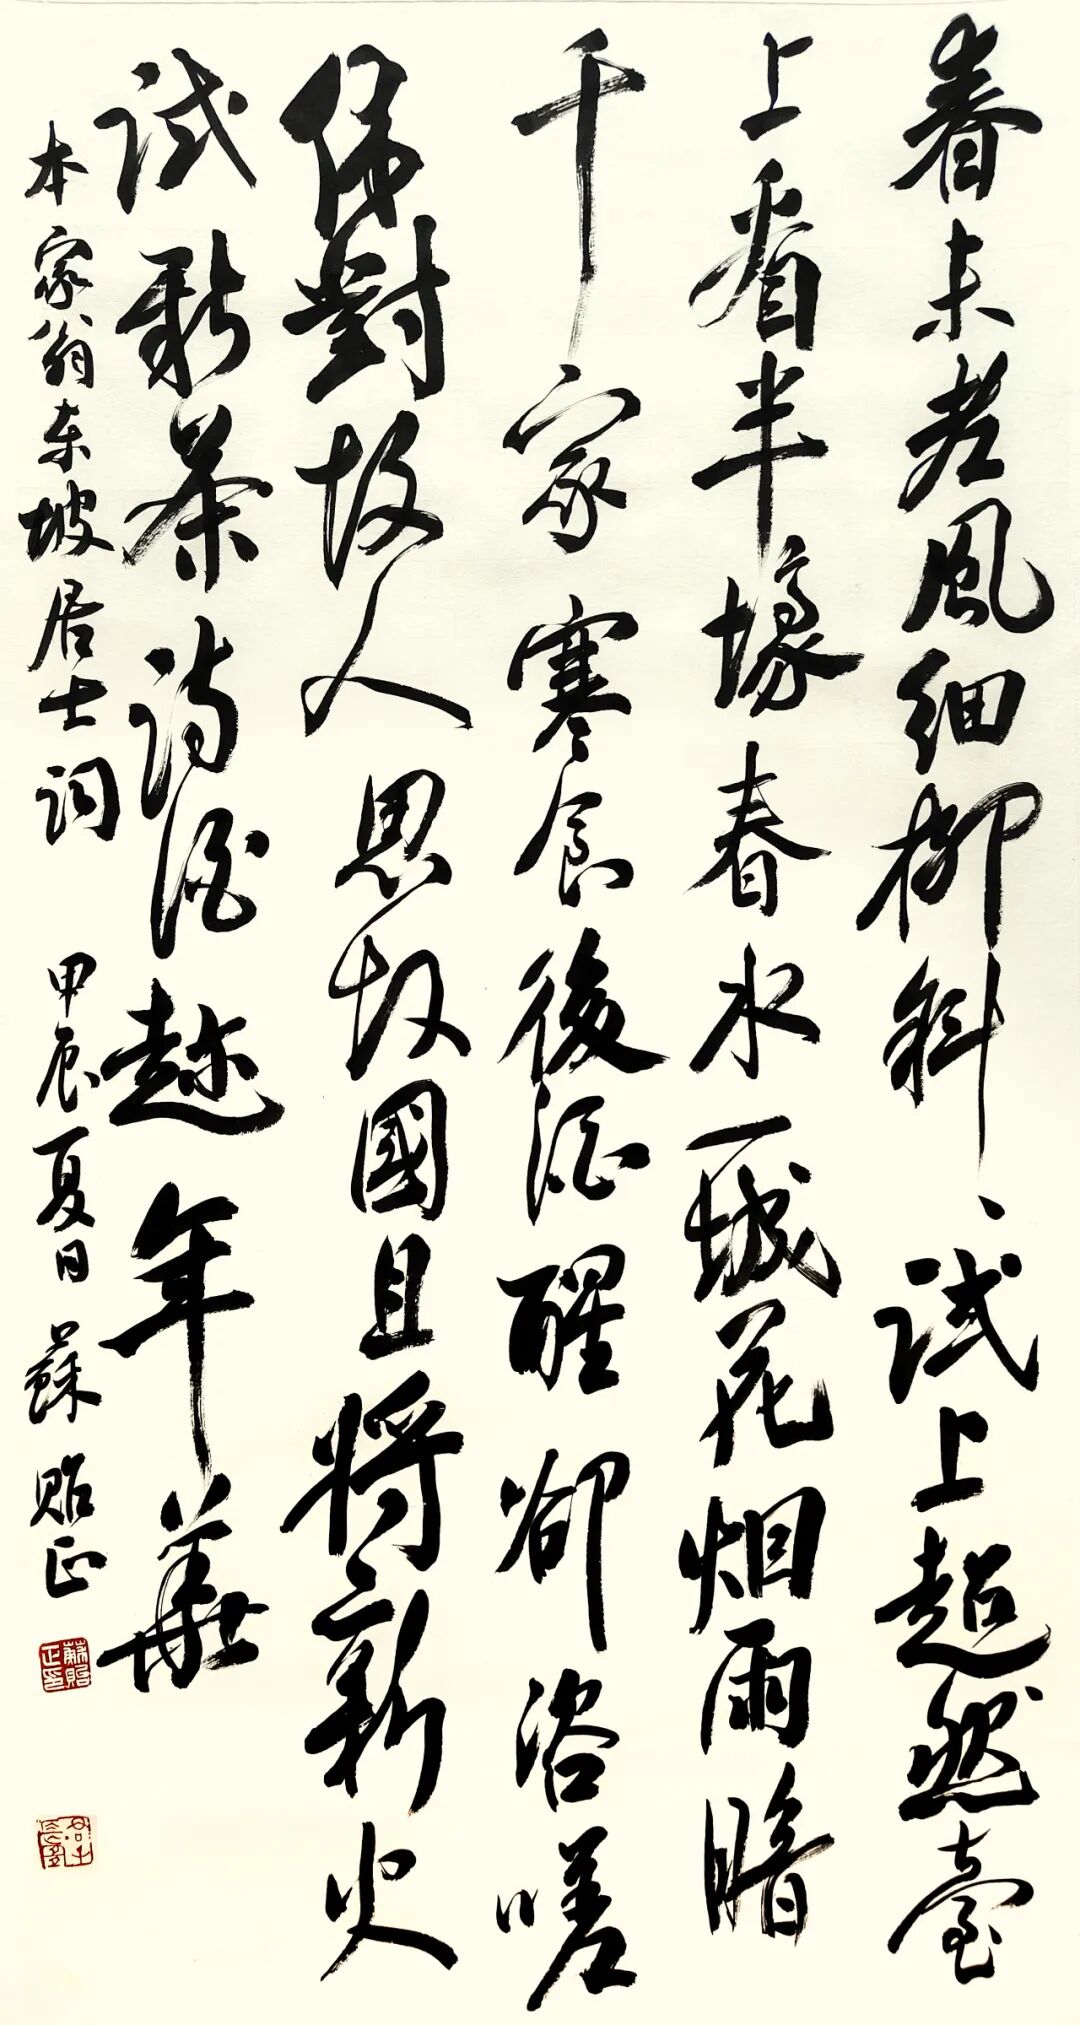 春未老風細柳斜、試上超然臺
上看半壕春水一城花烟雨暗
千家寒食後酒醒卻咨嗟
休對故人思故國且將新火
試新茶詩酒趂年華
本家翁東坡居士詞 甲辰夏日 蘇貽正
蘇貽正印